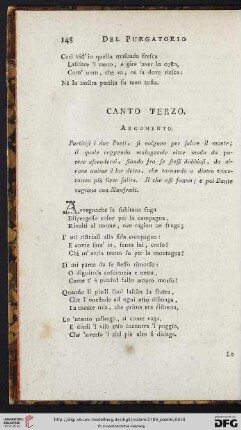 148 DEL PURGATORIO
Così vid' io quella masnada fresca
Lasciare 'l canto, e gire 'nver la costa,
Com' uom, che va, nè sa dove riesca:
Nè la nostra partita fu men tosta.
CANTO TERZO.
ARGOMENTO.
Partitisi i due Poeti, si volgono per salire il monte;
il quale veggendo malagevole oltre modo da po-
tervi ascendere, stando fra se stessi dubbiosi, da al-
cune anime è lor detto, che tornando a dietro trove-
ranno più lieve salita. Il che essi fanno; e poi Dante
ragiona con Manfredi.
Avvegnachè la subitana fuga
Dispergesse color per la campagna,
Rivolti al monte, ove ragion ne fruga;
I' mi ristrinsi alla fida compagna:
E come sare' io, senza lui, corso?
Chi m' avria tratto su per la montagna?
Ei mi parea da se stesso rimorso:
O dignitosa coscienza e netta,
Come t' è picciol fallo amaro morso!
Quando li piedi suoi lasciar la fretta,
Che l' onestade ad ogni atto dismaga,
La mente mia, che prima era ristretta,
Lo 'ntento rallargò, sì come vaga,
E diedi 'l viso mio incontra 'l poggio,
Che 'nverso 'l ciel più alto si dislaga.
Lo
UNIVERSITÄTS-
BIBLIOTHEK
HEIDELBERG
Gefördert durch die
DFG